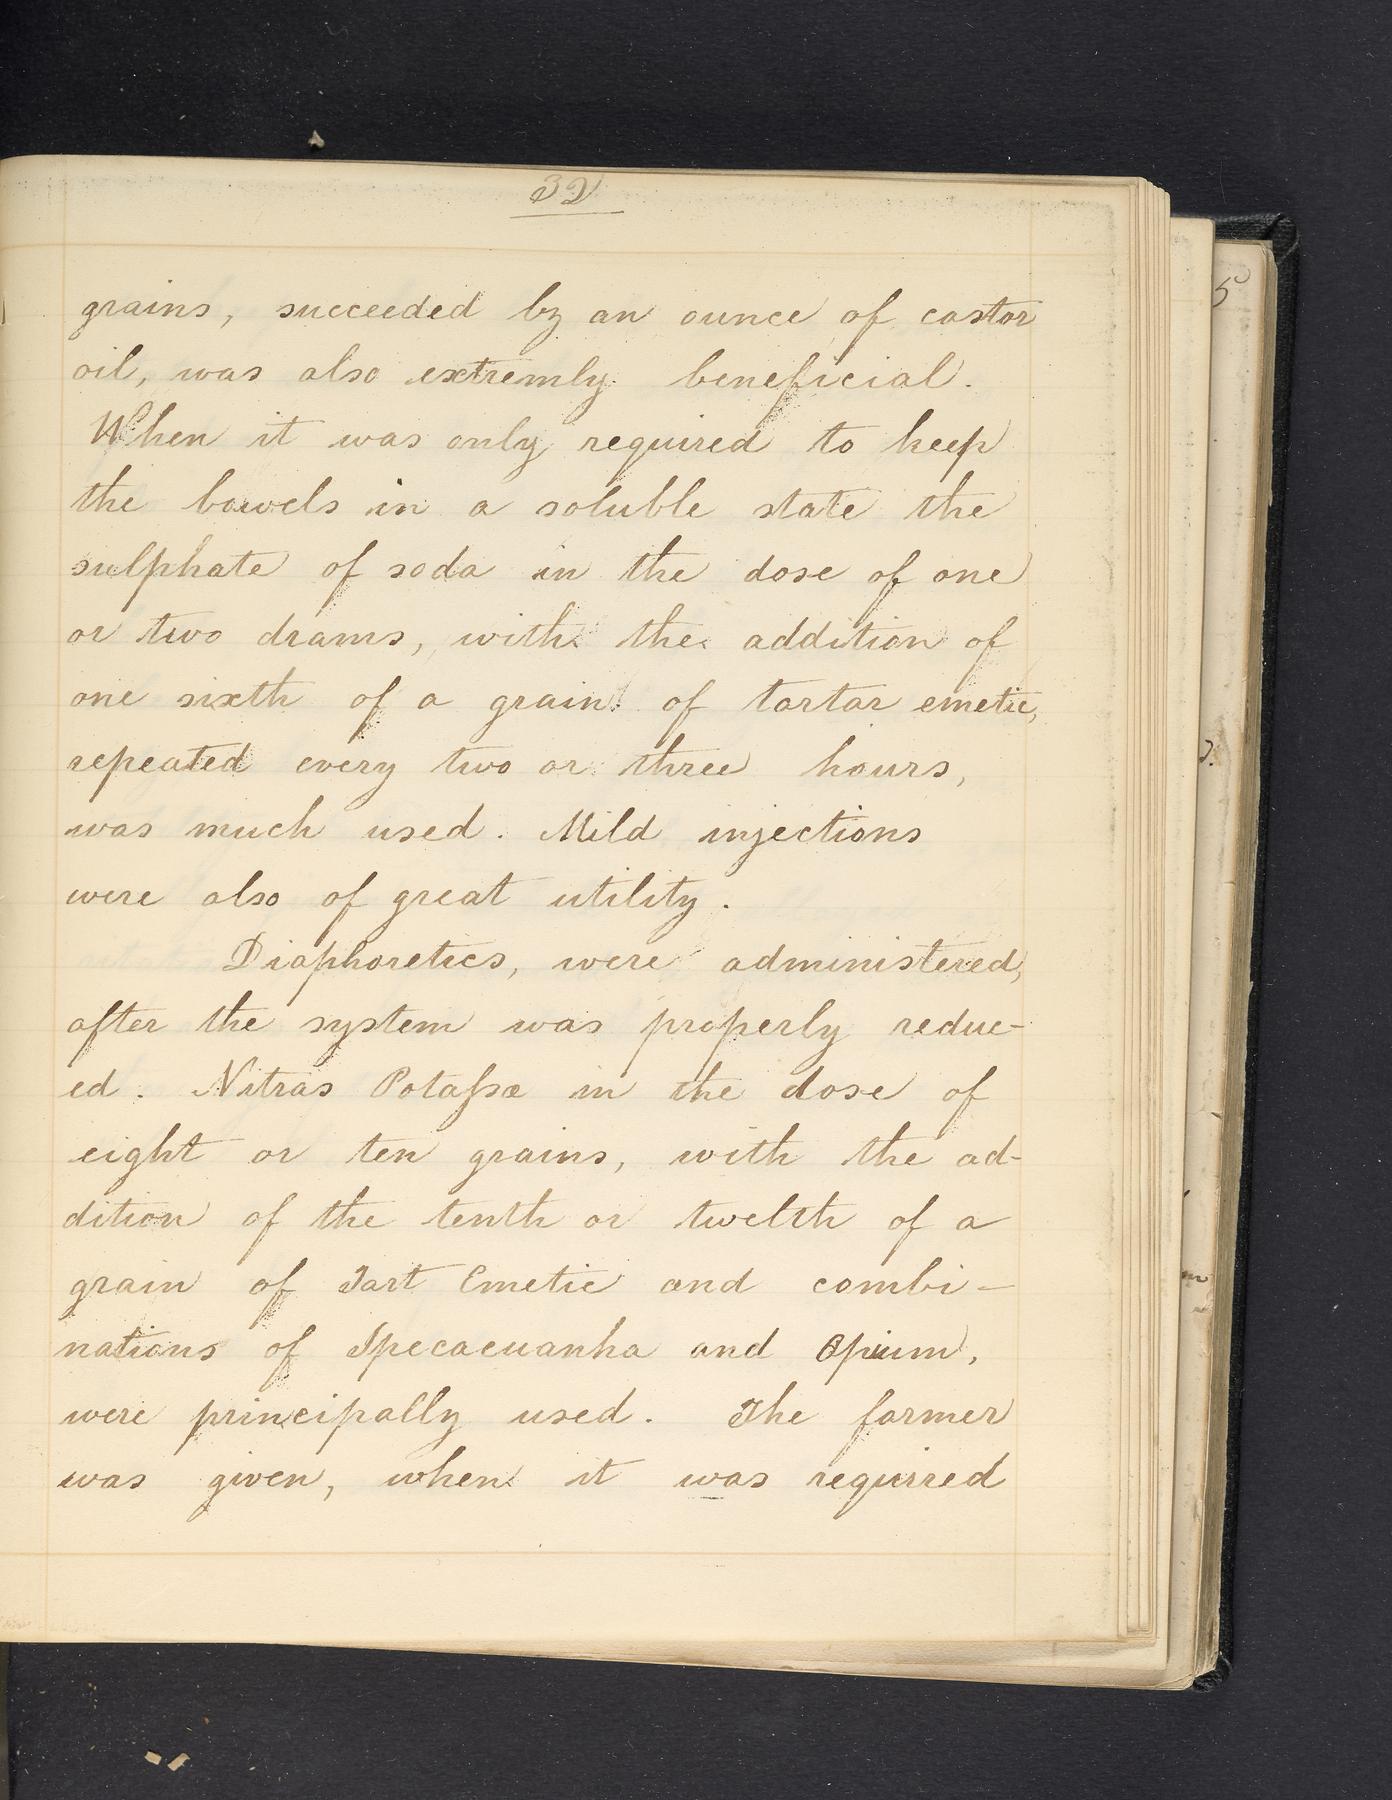 32
grains, succeeded by an ounce of castor
oil, was also extremly beneficial.
When it was only required to keep
the bowels in a soluble state the
sulphate of soda in the dose of one
or two drams, with the addition of
one sixth of a grain of tartar emetic,
repeated every two or three hours,
was much used. Mild injections
were also of great utility.
Diaphoretics, were administered,
after the system was properly reduc-
ed. Nitras Potaſsæ in the dose of
eight or ten grains, with the ad-
dition of the tenth or twelth of a
grain of Tart Emetic and combi-
nations of Ipecacuanha and Opium,
were principally used. The former
was given, when it was required
5